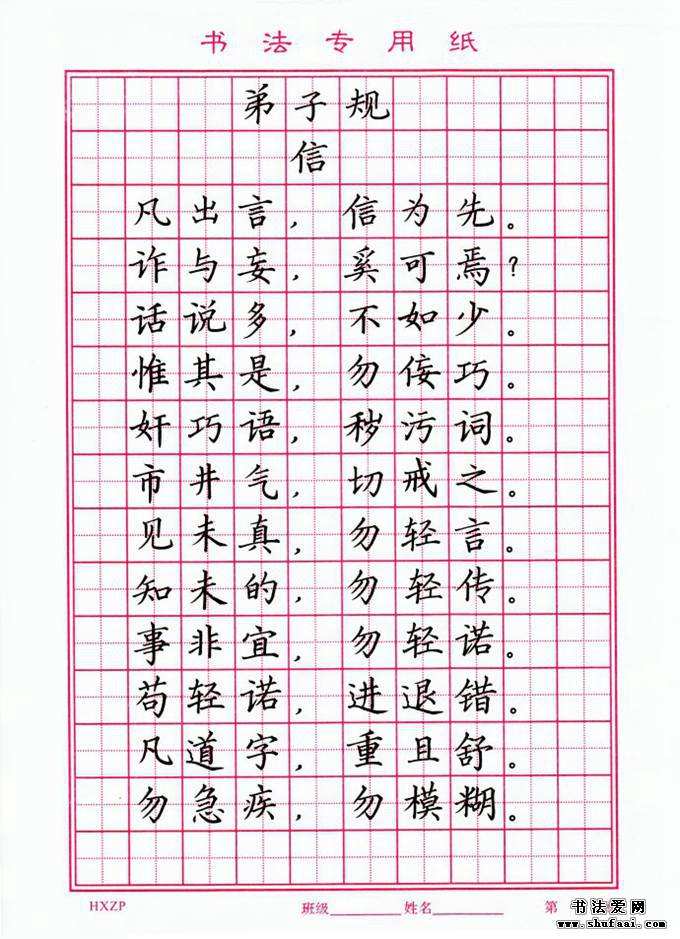 书法专用纸
弟子规
信
凡出言，信为先。
诈与妄，奚可焉？
话说多，不如少。
惟其是，勿佞巧。
奸巧语，秽污词。
市井气，切戒之。
见未真，勿轻言。
知未的，勿轻传。
事非宜，勿轻诺。
苟轻诺，进退错。
凡道字，重且舒。
勿急疾，勿模糊。
HXZP 班级________ 姓名________ 第
书法爱网
www.shufaai.com